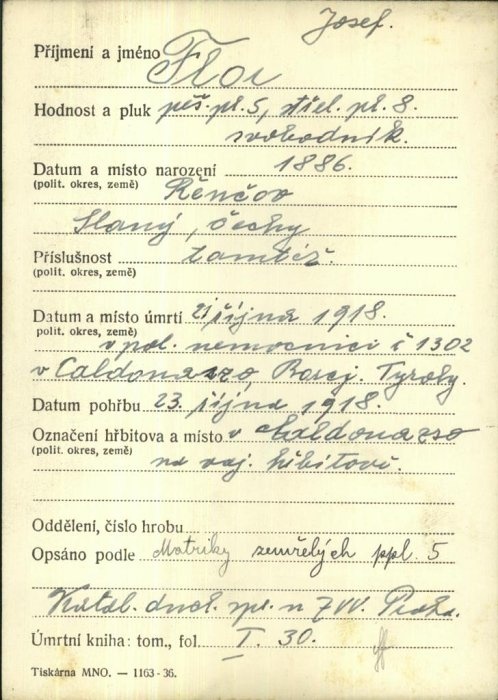 Josef.
Příjmení a jméno Flor
Hodnost a pluk pěš. pl. 5, střel. pl. 8.
svobodník.
Datum a místo narození 1886.
(polit. okres, země) Řenčov
Slaný, Čechy
Příslušnost tamtéž.
(polit. okres, země)
Datum a místo úmrtí 21 října 1918.
polit. okres, země)
v pol. nemocnici č 1302
v Caldonazzo, Tyroly.
Datum pohřbu 23. října 1918.
Označení hřbitova a místo v Caldonazzo
(polit. okres, země)
na voj. hřbitově.
Oddělení, číslo hrobu
Opsáno podle Matriky zemřelých ppl. 5
Praha.
Úmrtní kniha: tom., fol. I. 30.
Tiskárna MNO. — 1163-36.